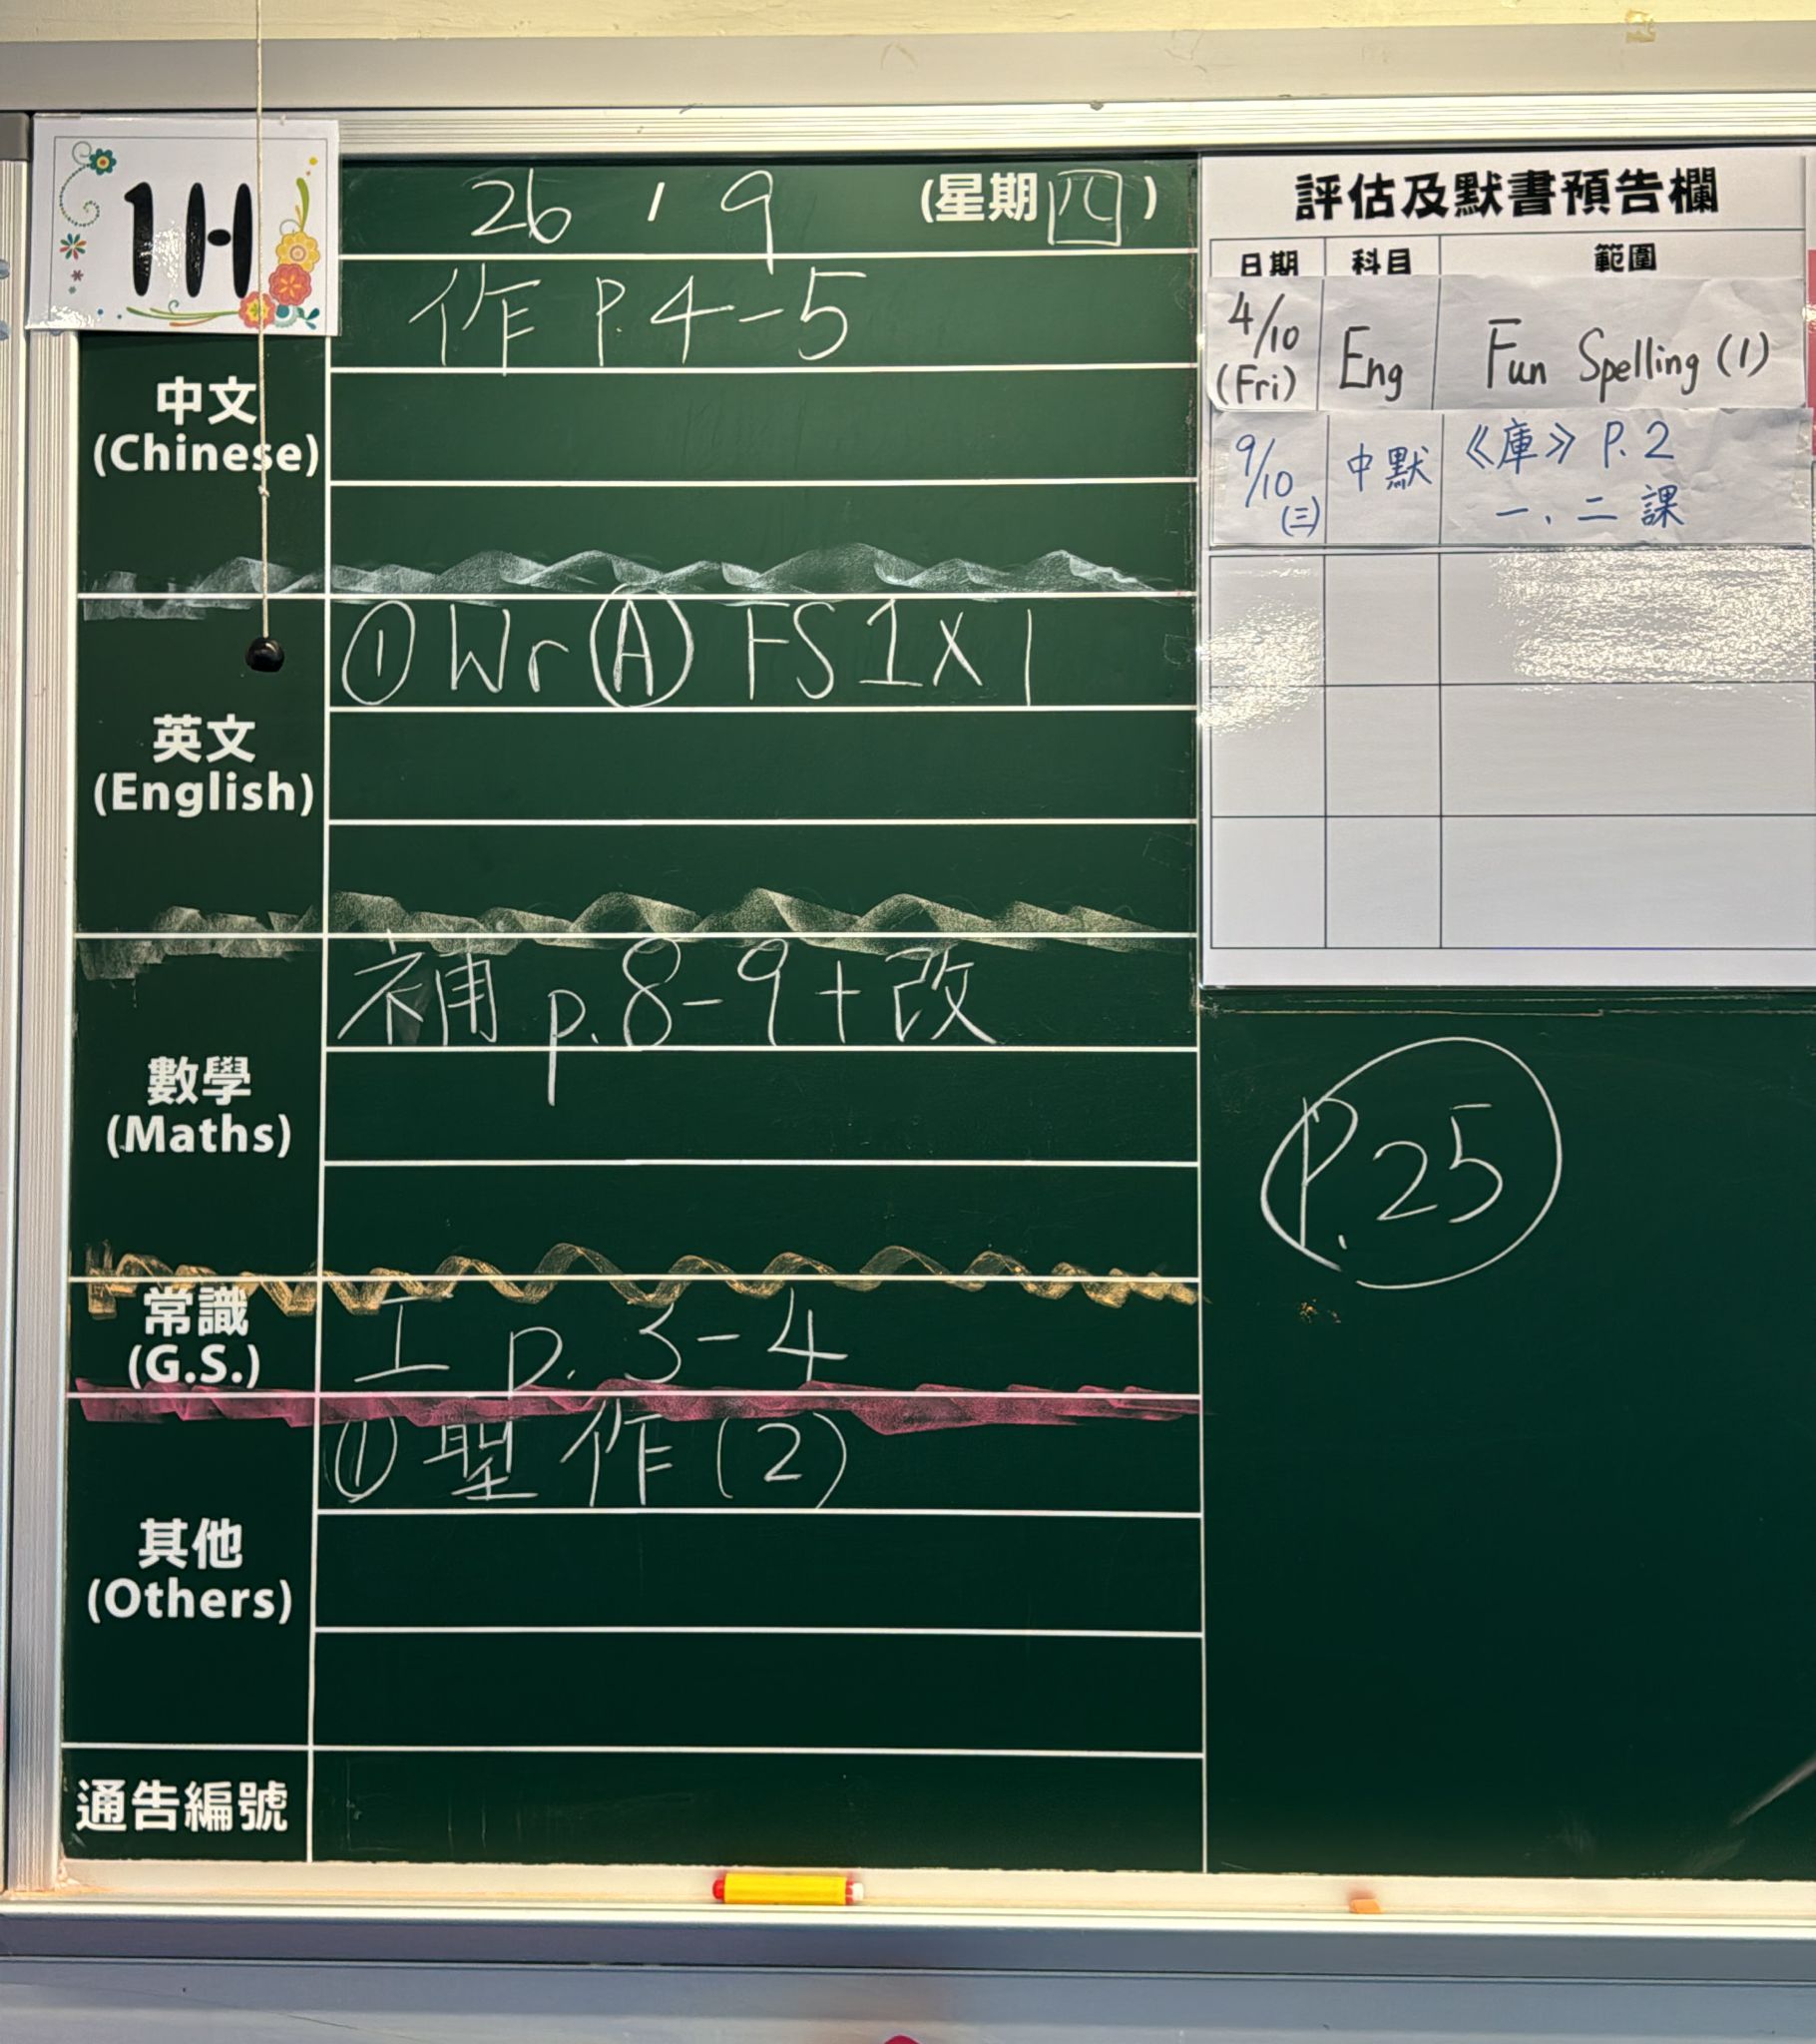 1H
26 / 9 (星期四)
中文
(Chinese)
作 P.4-5
英文
(English)
① Wr Ⓐ FS1X1
數學
(Maths)
補 p.8-9+改
常識
(G.S.)
工 p. 3-4
其他
(Others)
① 聖作(2)
通告編號
評估及默書預告欄
日期 科目 範圍
4/10 (Fri) Eng Fun Spelling (1)
9/10 (三) 中默 《庫》P.2
一、二課
P.25